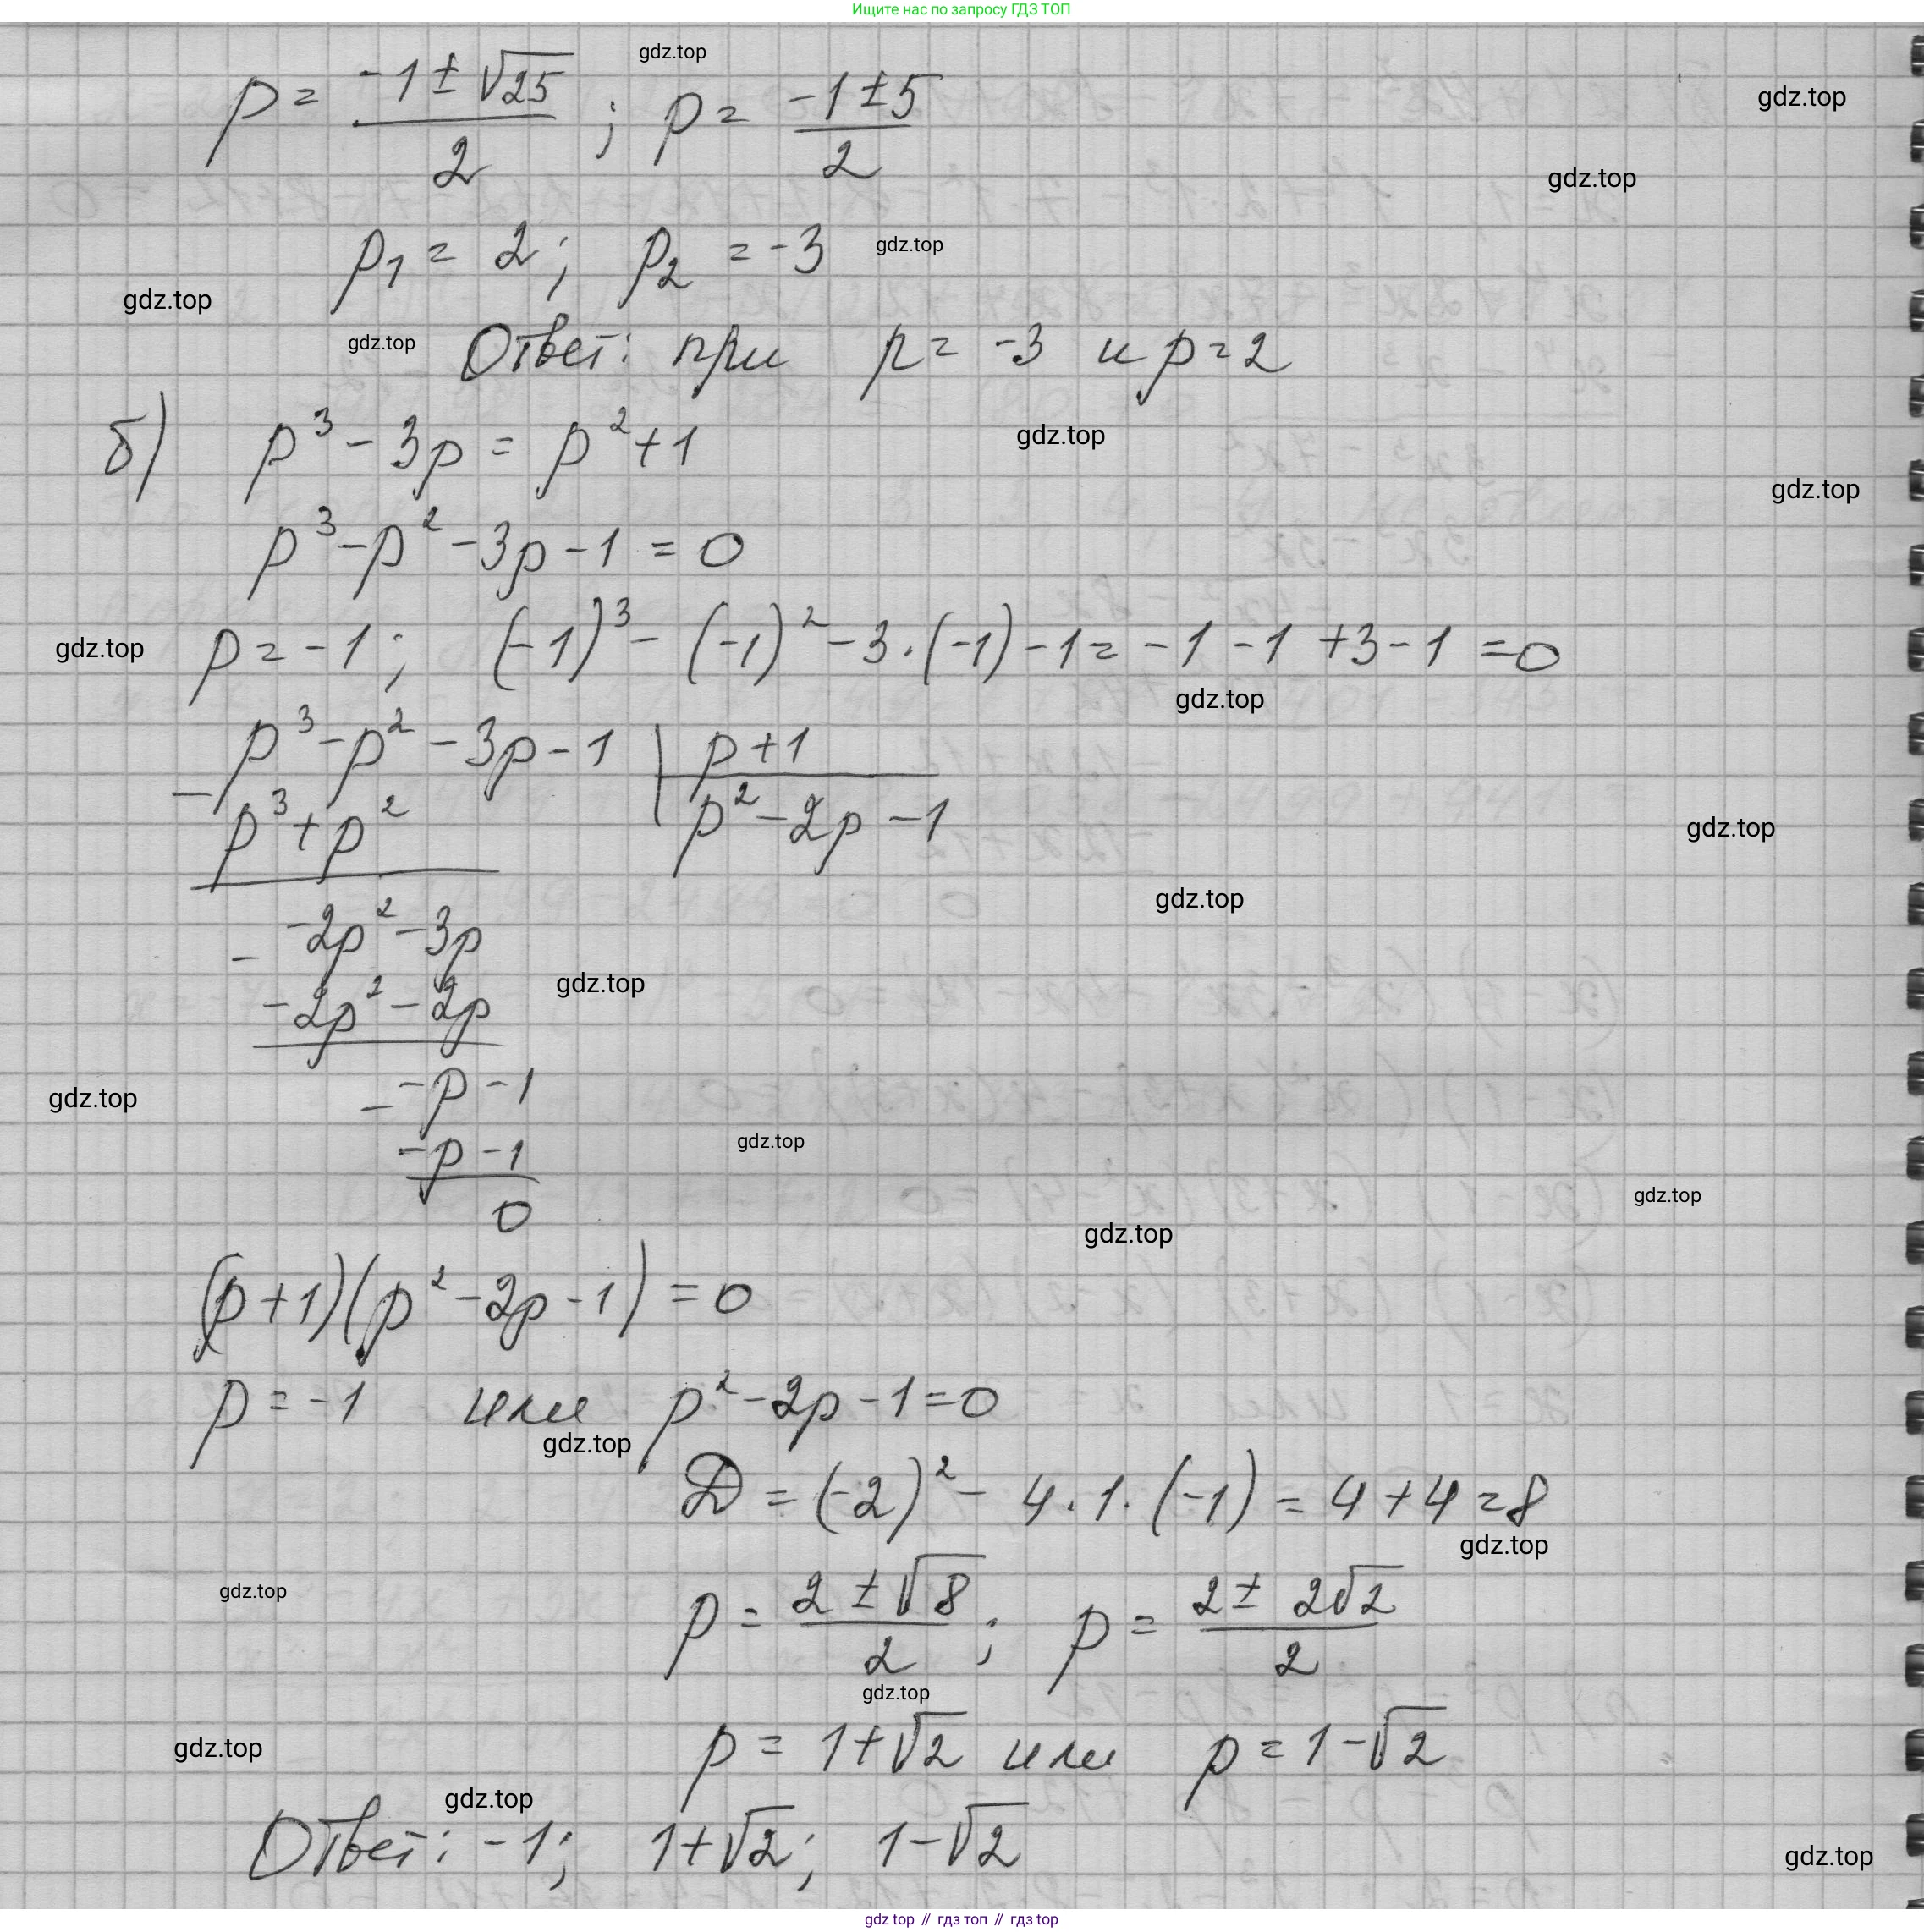 Ищите нас по запросу ГДЗ ТОП
p = (-1 ± √25)/2 ; p = (-1 ± 5)/2
gdz.top
gdz.top
gdz.top
p₁ = 2; p₂ = -3
gdz.top
gdz.top
gdz.top
Ответ: при p = -3 и p = 2
б) p³ - 3p = p² + 1
gdz.top
gdz.top
p³ - p² - 3p - 1 = 0
p = -1; (-1)³ - (-1)² - 3·(-1) - 1 = -1 - 1 + 3 - 1 = 0
gdz.top
gdz.top
p³ - p² - 3p - 1 | p + 1
- p³ + p² | p² - 2p - 1
gdz.top
gdz.top
- -2p² - 3p
-2p² - 2p
gdz.top
- -p - 1
gdz.top
-p - 1
gdz.top
0
gdz.top
gdz.top
(p + 1)(p² - 2p - 1) = 0
p = -1 или p² - 2p - 1 = 0
gdz.top
D = (-2)² - 4·1·(-1) = 4 + 4 = 8
gdz.top
gdz.top
p = (2 ± √8)/2 ; p = (2 ± 2√2)/2
gdz.top
p = 1 + √2 или p = 1 - √2
gdz.top
gdz.top
Ответ: -1; 1 + √2; 1 - √2
gdz.top
gdz top // гдз топ // гдз top